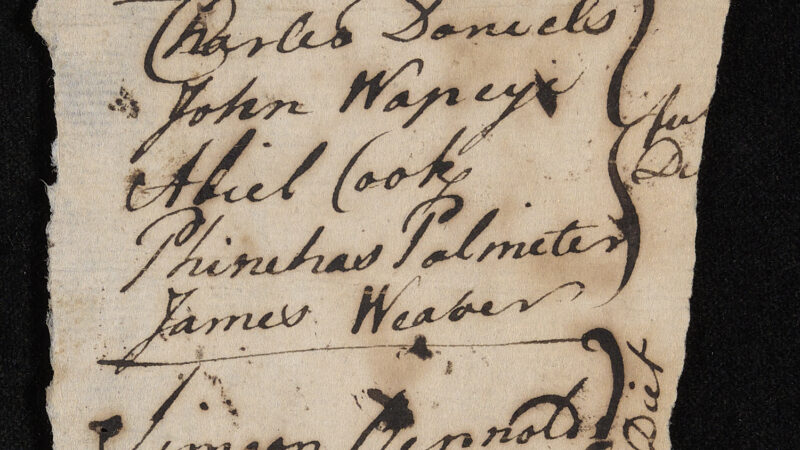 Charles Daniels
John Wapeyi
Abiel Cook
Phinehas Palmeter
James Weaver
Simeon
Diet